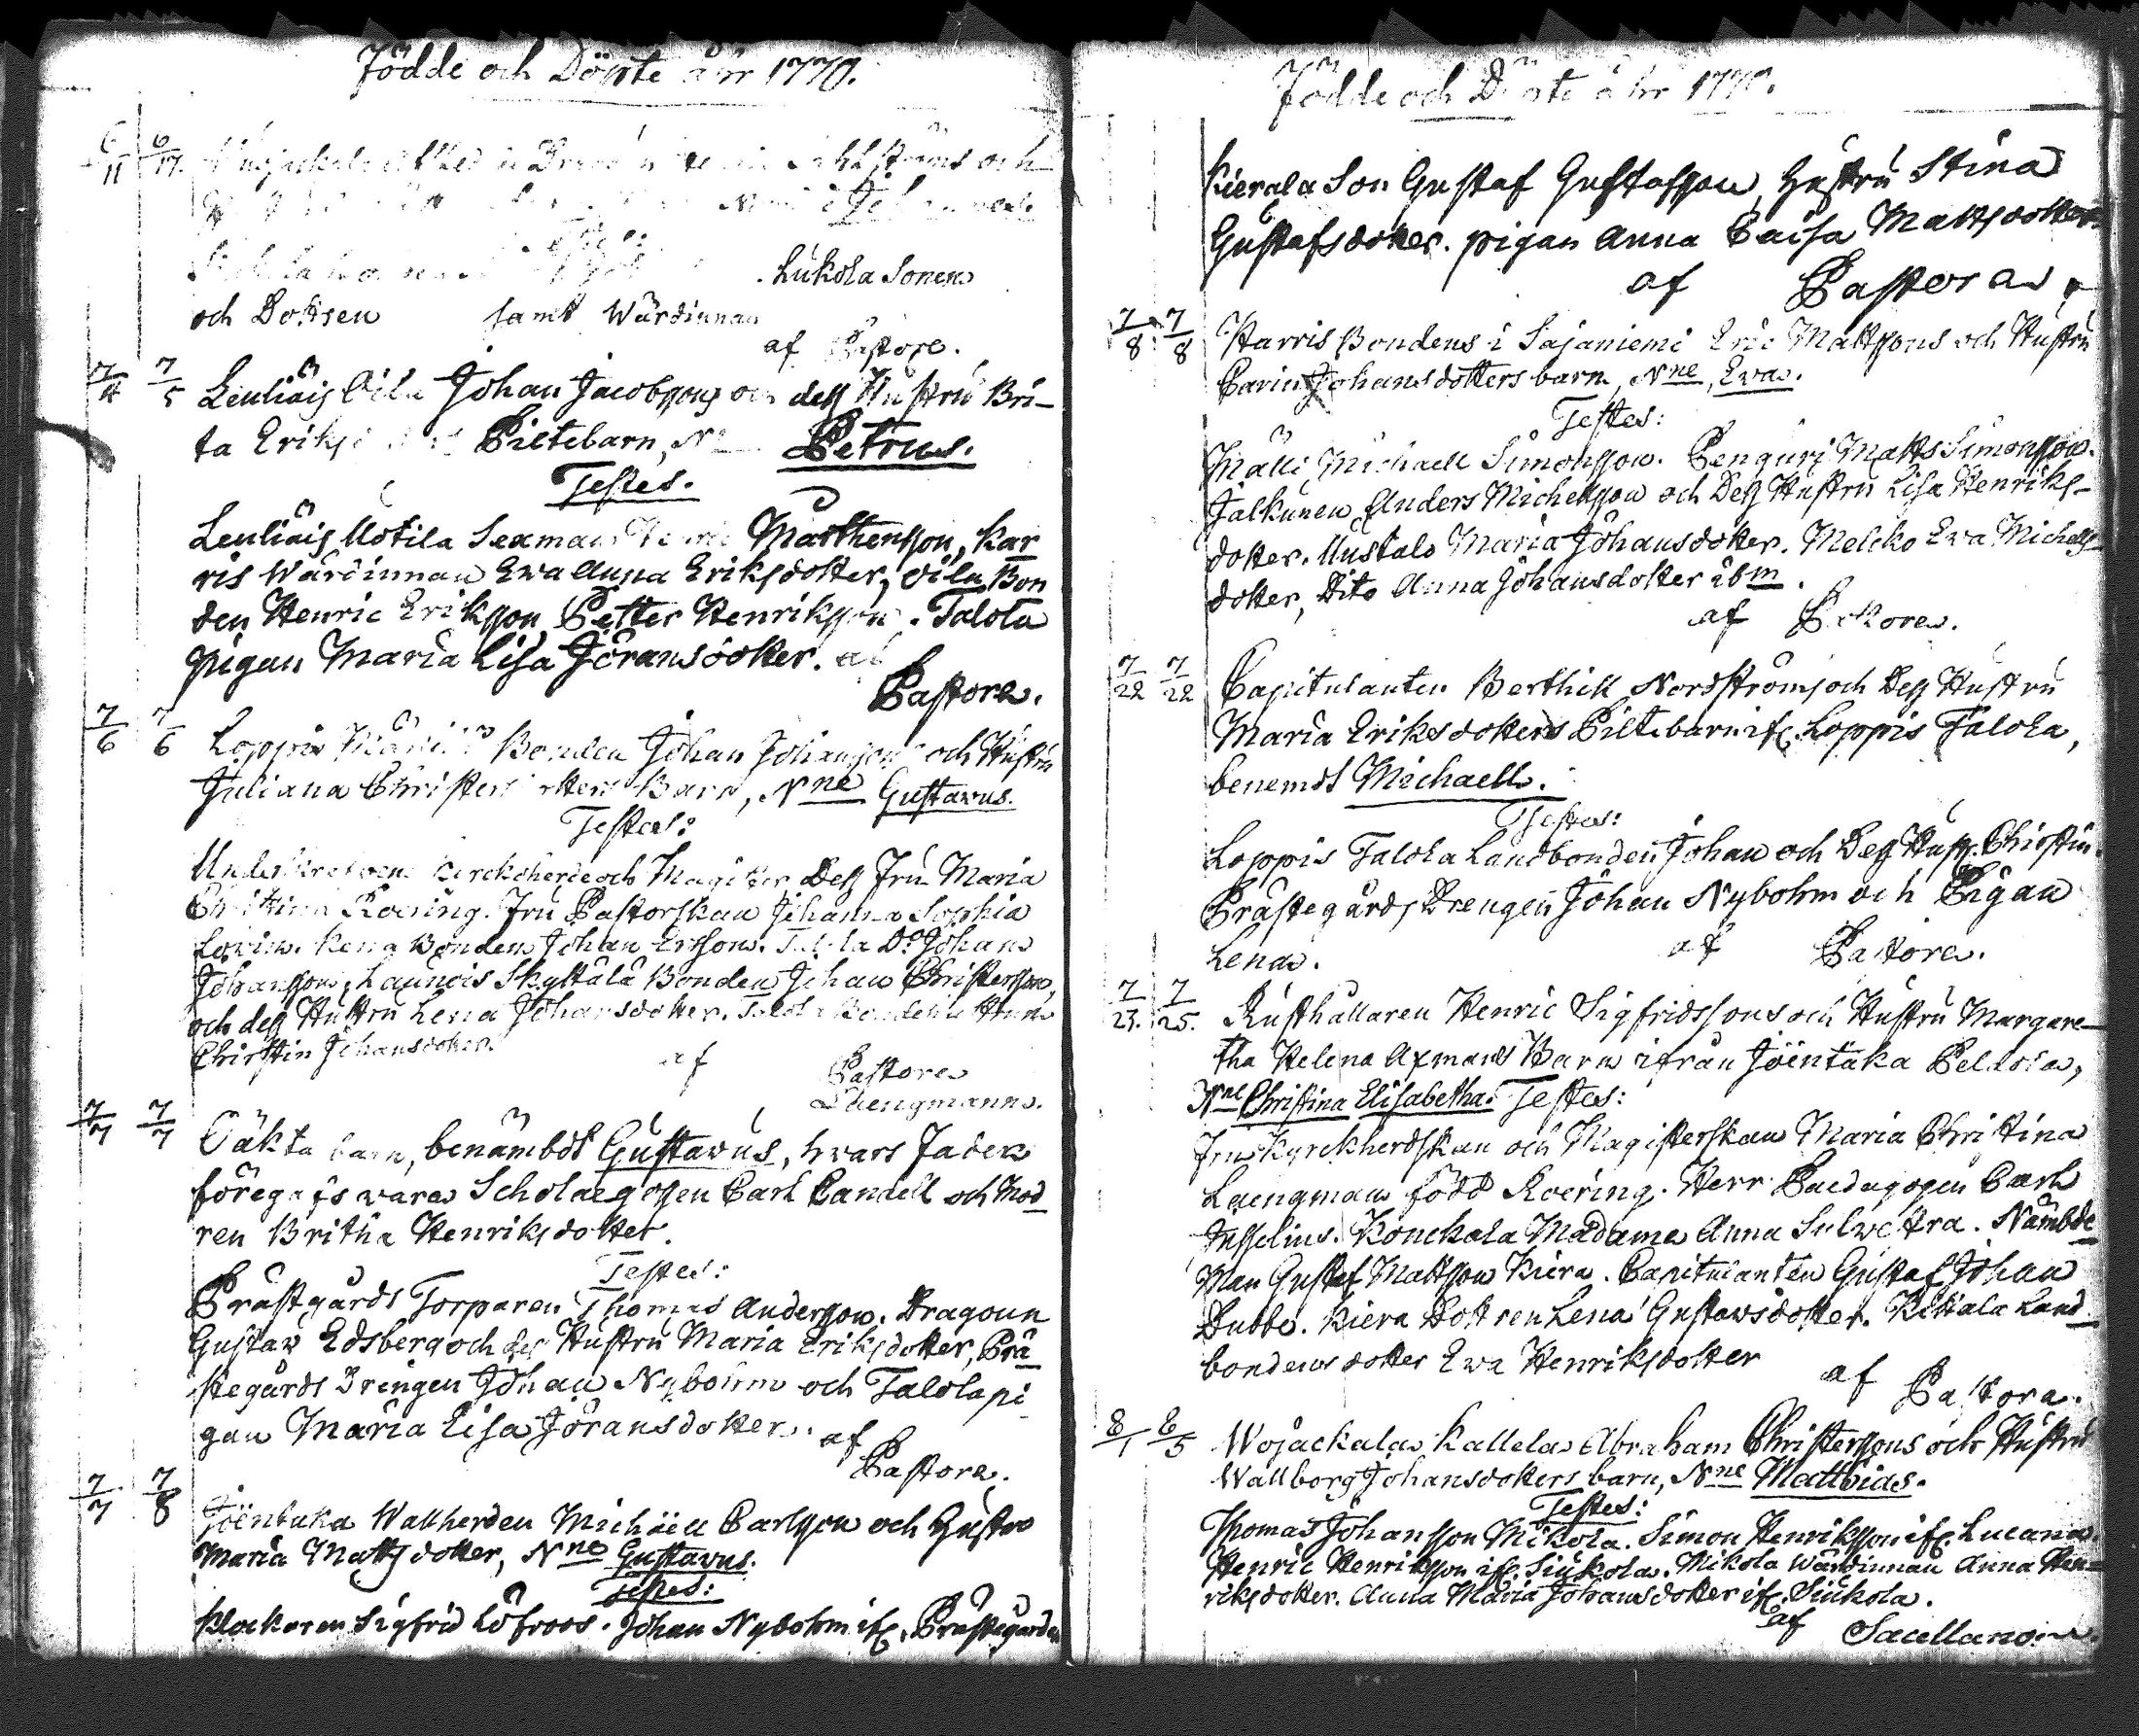 Födde och Döpte åhr 1770.
6/11 6/17.
och
Lukola Sonen
och Dottren samt Wärdinnan
af Pastore.
7/4 7/5 Leuliäis Oila Johan Jacobssons och dess Hustru Bri-
ta Eriks Piltebarn, Petrus.
Testes.
Leuliäis Uotila Sexman Marthensson, Kar
ris Wärdinnan Ewa Anna Eriksdotter, Oila Bon
den Henric Eriksson Petter Henriksson. Talola
pigan Maria Lisa Jöransdotter. af
Pastore.
7/6 7/6 Loppis Bonden Johan Johanssons och Hustru
Juliana Christersdotters Barn, Nne Gustavus.
Testes:
Kirckoherde och Magister Dess Fru Maria
Christina Roering. Fru Pastorskan Johanna Sophia
Bonden Johan Ersson. Talola Do Johan
Johansson, Launois Skyttälä Bonden Johan Christersson,
och dess Hustru Lena Johansdotter. Talola Bondens Hustru
Christin Johansdotter.
af Pastore
Laengmann.
7/7 7/7 Oäkta barn, benämbdt Gustavus, hwars Fader
föregafs wara Scholaegogen Carl Candell och Mod
ren Britha Henriksdotter.
Testes:
Prästgårds Torparen Thomas Andersson. Dragoun
Gustav Edsberg och des Hustru Maria Eriksdotter, Prä
stegårds Drengen Johan Nybohm och Talola pi
gan Maria Lisa Jöransdotter. af
Pastore.
7/7 7/8 Joentaka Wallherden Michäell Carlsson och Hustro
Maria Mattsdotter, Nne Gustavus.
Testes:
Klockaren Sigfrid Löfroos. Johan Nybohm if. Prästegården
Födde och Döpte åhr 1770.
Kierala Son Gustaf Gustafsson, Hustru Stina
Gustafsdotter. pigan Anna Caisa Mattsdotter.
af Pastore.
7/8 7/8 Harris Bondens i Sajaniemi Eric Mattssons och Hustru
Carin Johansdotters barn, Nne, Ewa.
Testes:
Mälli Michaell Simonsson. Penguri Matts Simonsson.
Jalkunen Anders Michelsson och Dess Hustru Lisa Henriks-
dotter. Uustalo Maria Johansdotter. Melcko Ewa Michels
dotter, Dito Anna Johansdotter ibm.
af Pastore.
7/22 7/22 Capitulanten Berthill Nordströms och Dess Hustru
Maria Eriksdotters Piltebarn if. Loppis Talola,
benemdt Michaell.
Testes:
Loppis Talola Landbonden Johan och Dess Hust. Christin.
Prästegårds Drengen Johan Nybohm och Pigan
Lena. af Pastore.
7/23. 7/25. Rusthållaren Henric Sigfridssons och Hustru Margare-
tha Helena Axmans Barn ifrån Joentaka Peldola,
Nne Christina Elisabetha. Testes:
Fru Kyrckherdskan och Magisterskan Maria Christina
Laengman född Roering. Herr Paedagogen Carl
Konckala Madame Anna Sulwestra. Nämbde
Man Gustaf Mattsson Kiera. Capitulanten Gustaf Johan
Dubbe. Kiera Dottren Lena Gustavsdotter. Kittala Land
bondens dotter Ewa Henriksdotter af Pastore.
8/1 8/5 Wojackala Kallela Abraham Christerssons och Hustru
Wallborg Johansdotters barn, Nne Matthias.
Testes:
Thomas Johansson Mikola. Simon Henriksson if. Lucana.
Henric Henriksson if. Siukola. Mikola Wärdinnan Anna Hen-
riksdotter. Anna Maria Johansdotter if. Siukola.
af Sacellano.